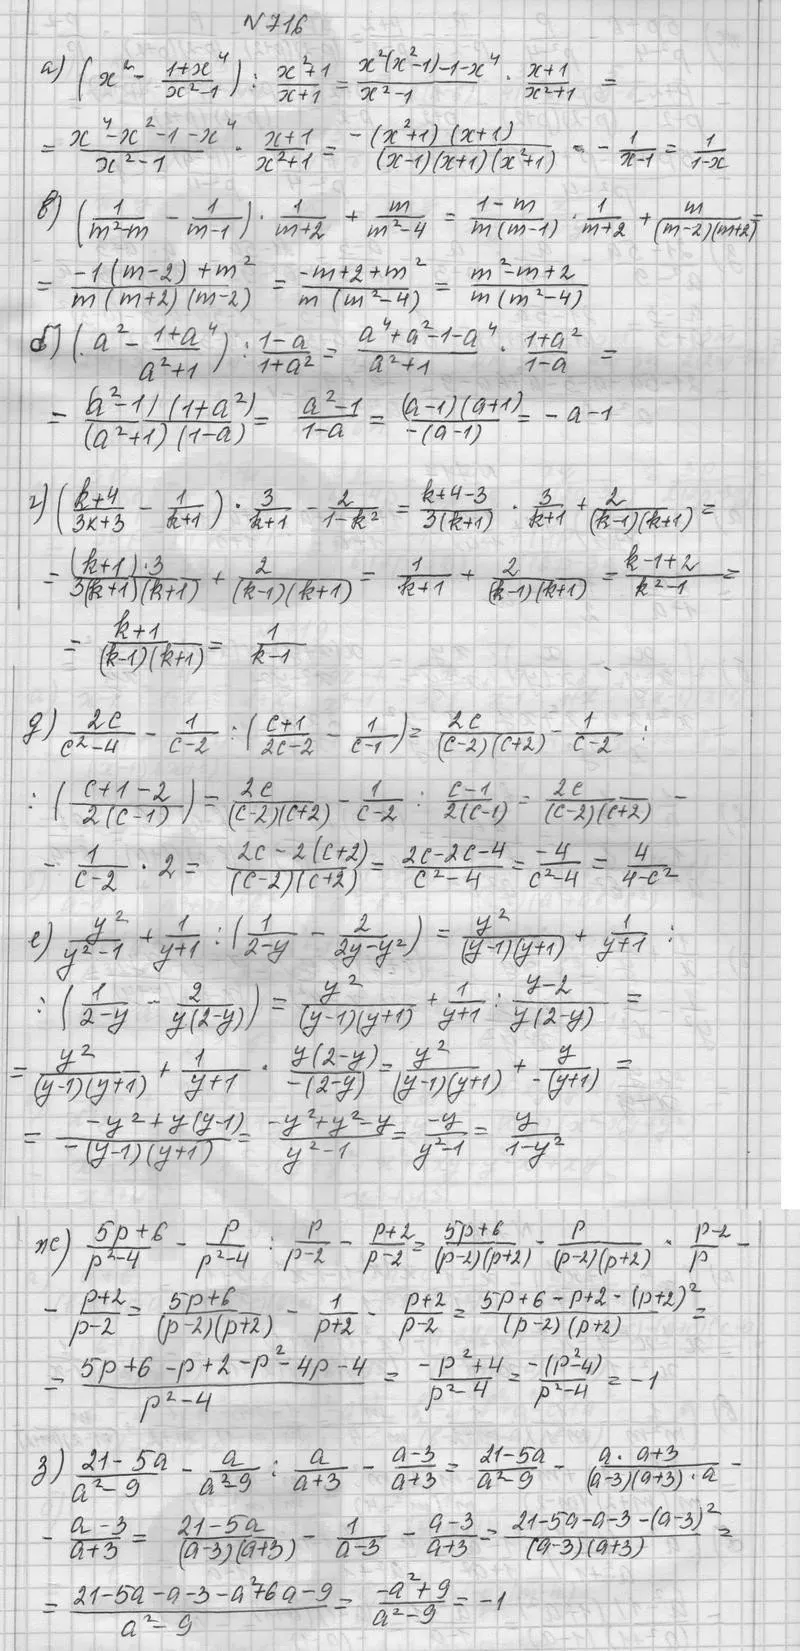 N 716
а) (x² - (1+x⁴)/(x²-1)) : (x²+1)/(x+1) = (x²(x²-1)-1-x⁴)/(x²-1) · (x+1)/(x²+1) =
= (x⁴-x²-1-x⁴)/(x²-1) · (x+1)/(x²+1) = (-(x²+1)(x+1))/((x-1)(x+1)(x²+1)) = - 1/(x-1) = 1/(1-x)
в) (1/(m²-m) - 1/(m-1)) · 1/(m+2) + m/(m²-4) = (1-m)/(m(m-1)) · 1/(m+2) + m/((m-2)(m+2)) =
= (-1(m-2)+m²)/(m(m+2)(m-2)) = (-m+2+m²)/(m(m²-4)) = (m²-m+2)/(m(m²-4))
б) (a² - (1+a⁴)/(a²+1)) : (1-a)/(1+a²) = (a⁴+a²-1-a⁴)/(a²+1) · (1+a²)/(1-a) =
= ((a²-1)(1+a²))/((a²+1)(1-a)) = (a²-1)/(1-a) = ((a-1)(a+1))/(-(a-1)) = -a-1
г) ((k+4)/(3k+3) - 1/(k+1)) · 3/(k+1) - 2/(1-k²) = (k+4-3)/(3(k+1)) · 3/(k+1) + 2/((k-1)(k+1)) =
= ((k+1)·3)/(3(k+1)(k+1)) + 2/((k-1)(k+1)) = 1/(k+1) + 2/((k-1)(k+1)) = (k-1+2)/(k²-1) =
= (k+1)/((k-1)(k+1)) = 1/(k-1)
д) 2c/(c²-4) - 1/(c-2) : ((c+1)/(2c-2) - 1/(c-1)) = 2c/((c-2)(c+2)) - 1/(c-2) :
: ((c+1-2)/(2(c-1))) = 2c/((c-2)(c+2)) - 1/(c-2) : (c-1)/(2(c-1)) = 2c/((c-2)(c+2)) -
- 1/(c-2) · 2 = (2c-2(c+2))/((c-2)(c+2)) = (2c-2c-4)/(c²-4) = -4/(c²-4) = 4/(4-c²)
е) y²/(y²-1) + 1/(y+1) : (1/(2-y) - 2/(2y-y²)) = y²/((y-1)(y+1)) + 1/(y+1) :
: (1/(2-y) - 2/(y(2-y))) = y²/((y-1)(y+1)) + 1/(y+1) : (y-2)/(y(2-y)) =
= y²/((y-1)(y+1)) + 1/(y+1) · (y(2-y))/(-(2-y)) = y²/((y-1)(y+1)) + y/(-(y+1)) =
= (-y²+y(y-1))/(-(y-1)(y+1)) = (-y²+y²-y)/(y²-1) = -y/(y²-1) = y/(1-y²)
ж) (5p+6)/(p²-4) - p/(p²-4) : p/(p-2) - (p+2)/(p-2) = (5p+6)/((p-2)(p+2)) - p/((p-2)(p+2)) · (p-2)/p -
- (p+2)/(p-2) = (5p+6)/((p-2)(p+2)) - 1/(p+2) - (p+2)/(p-2) = (5p+6-p+2-(p+2)²)/((p-2)(p+2)) =
= (5p+6-p+2-p²-4p-4)/(p²-4) = (-p²+4)/(p²-4) = (-(p²-4))/(p²-4) = -1
з) (21-5a)/(a²-9) - a/(a²-9) : a/(a+3) - (a-3)/(a+3) = (21-5a)/(a²-9) - (a·a+3)/((a-3)(a+3)·a) -
- (a-3)/(a+3) = (21-5a)/((a-3)(a+3)) - 1/(a-3) - (a-3)/(a+3) = (21-5a-a-3-(a-3)²)/((a-3)(a+3)) =
= (21-5a-a-3-a²+6a-9)/(a²-9) = (-a²+9)/(a²-9) = -1